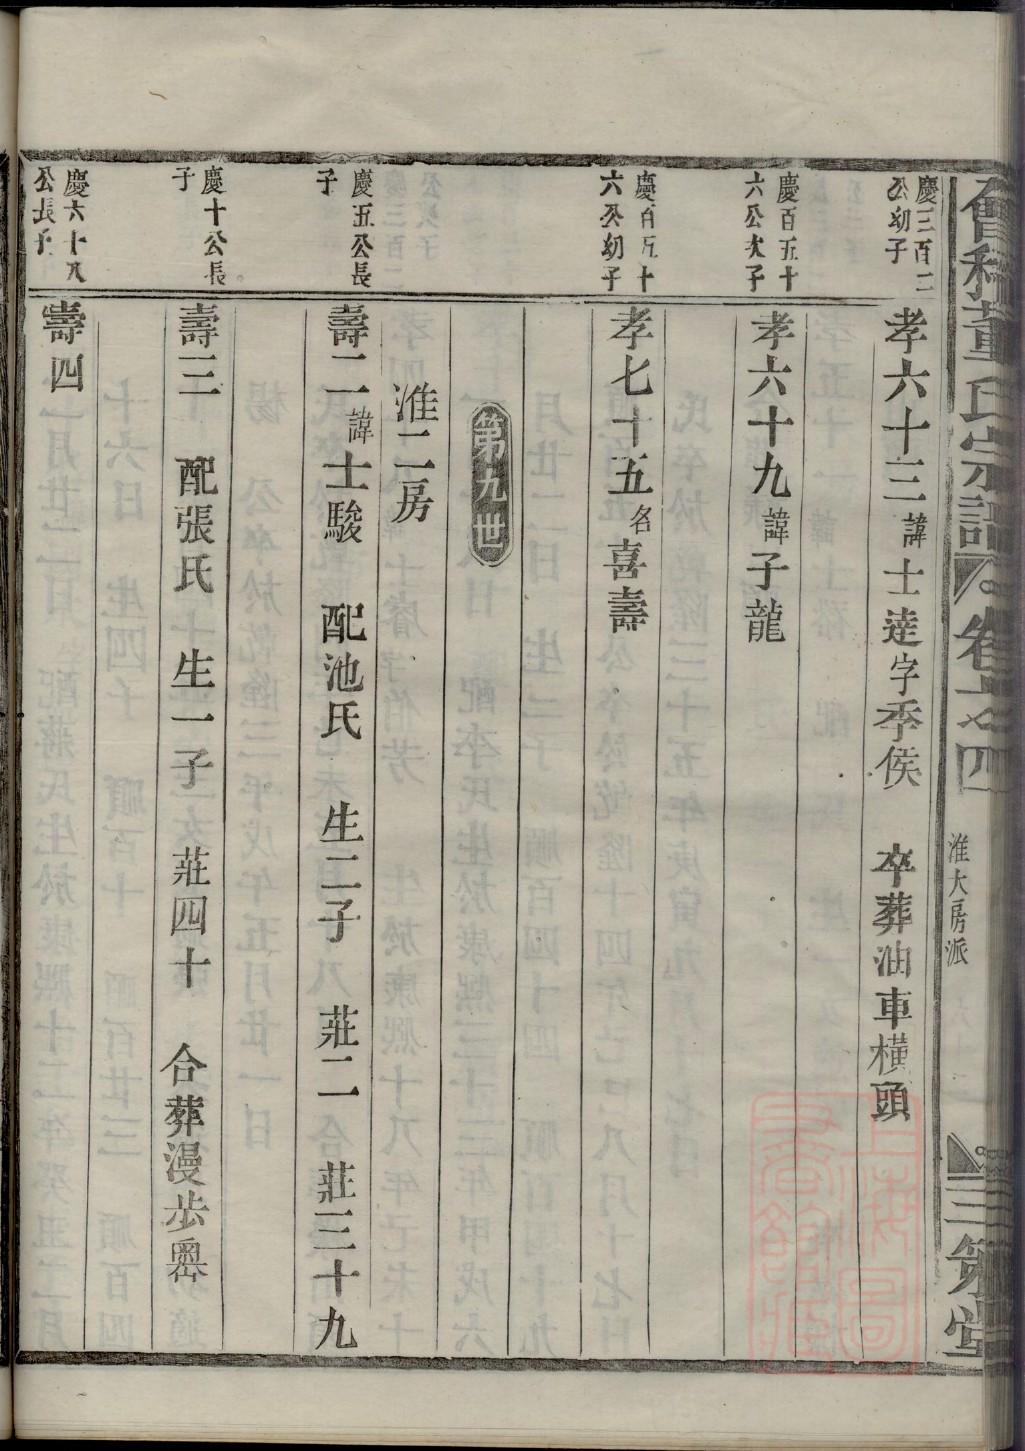 會稽董氏宗譜 卷十之四 淮大房派 三策堂
慶三百二
公幼子
孝六十三諱士達字季侯 卒葬油車橫頭
慶百五十
六公次子
孝六十九諱子龍
慶百五十
六公幼子
孝七十五名喜壽
第九世
淮二房
慶五公長
子
壽二諱士駿 配池氏 生二子 莊二 莊三十九
慶十公長
子
壽三 配張氏 生一子 莊四十 合葬漫步嶴
慶六十八
公長子
壽四